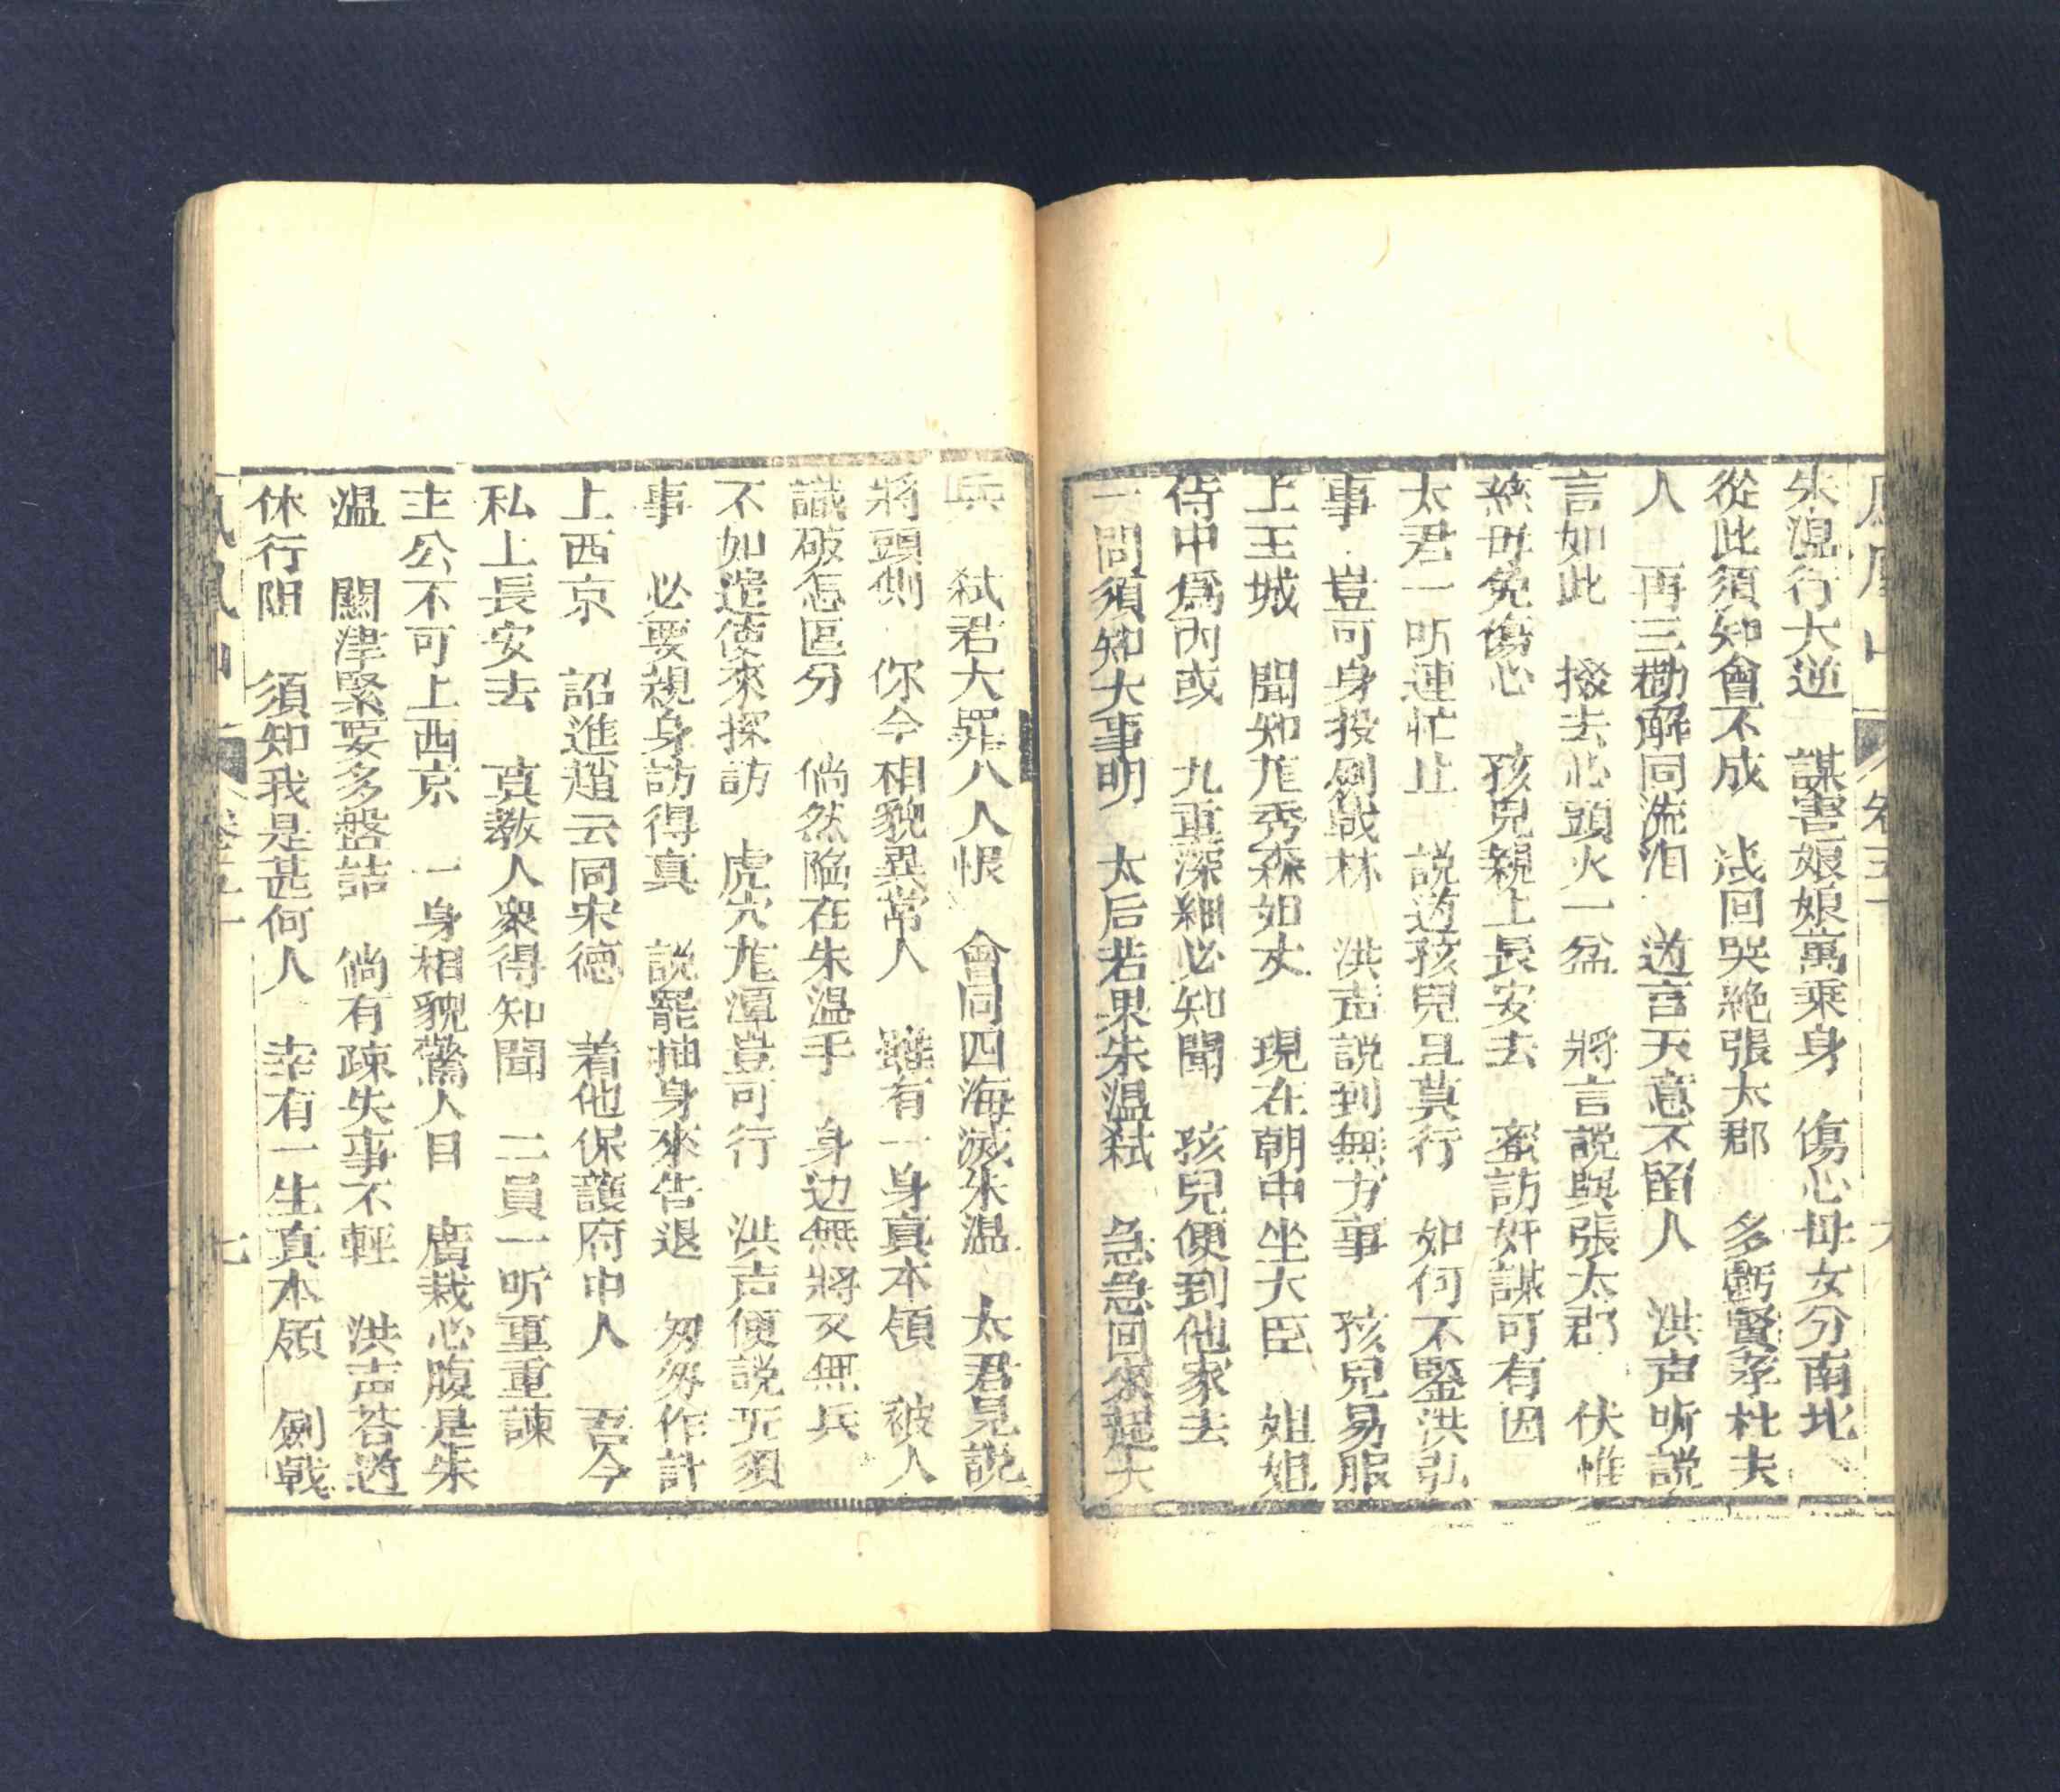 朱温行大逆　謀害娘娘萬乘身　傷心母女分南北
從此須知會不成　歲回哭絕張太郡　多虧賢孝杜夫
人　再三勸解同流泪　道言天意不留人　洪声听説
言如此　掇去心頭火一盆　將言説與張太郡　伏惟
慈母免傷心　孩兒親上長安去　蜜訪奸謀可有因
太君一听連忙止　説道孩兒且莫行　如何不鑒洪弘
事　豈可身投劍戟林　洪声説到無方事　孩兒易服
上王城　聞知尨秀森如丈　現在朝中坐大臣　姐姐
侍中爲內或　九重深細必知聞　孩兒便到他家去
一問須知大事明　太后若果朱温弒　急急回來起大
兵　弒君大罪八人恨　會同四海滅朱温　太君見説
將頭側　你今相貌異常人　雖有一身真本領　被人
識破怎區分　倘然陷在朱温手　身边無將又無兵
不如遣使來探訪　虎穴尨潭豈可行　洪声便説旡須
事　必要親身訪得真　説罷抽身來告退　匆匆作計
上西京　詔進趙云同宋德　着他保護府中人　吾今
私上長安去　真教人衆得知聞　二員一听重重諫
主公不可上西京　一身相貌驚人目　廣栽心腹是朱
温　關津緊要多盤詰　倘有疎失事不輕　洪声荅道
休行阻　須知我是甚何人　幸有一生真本領　劍戟
卷五十
七